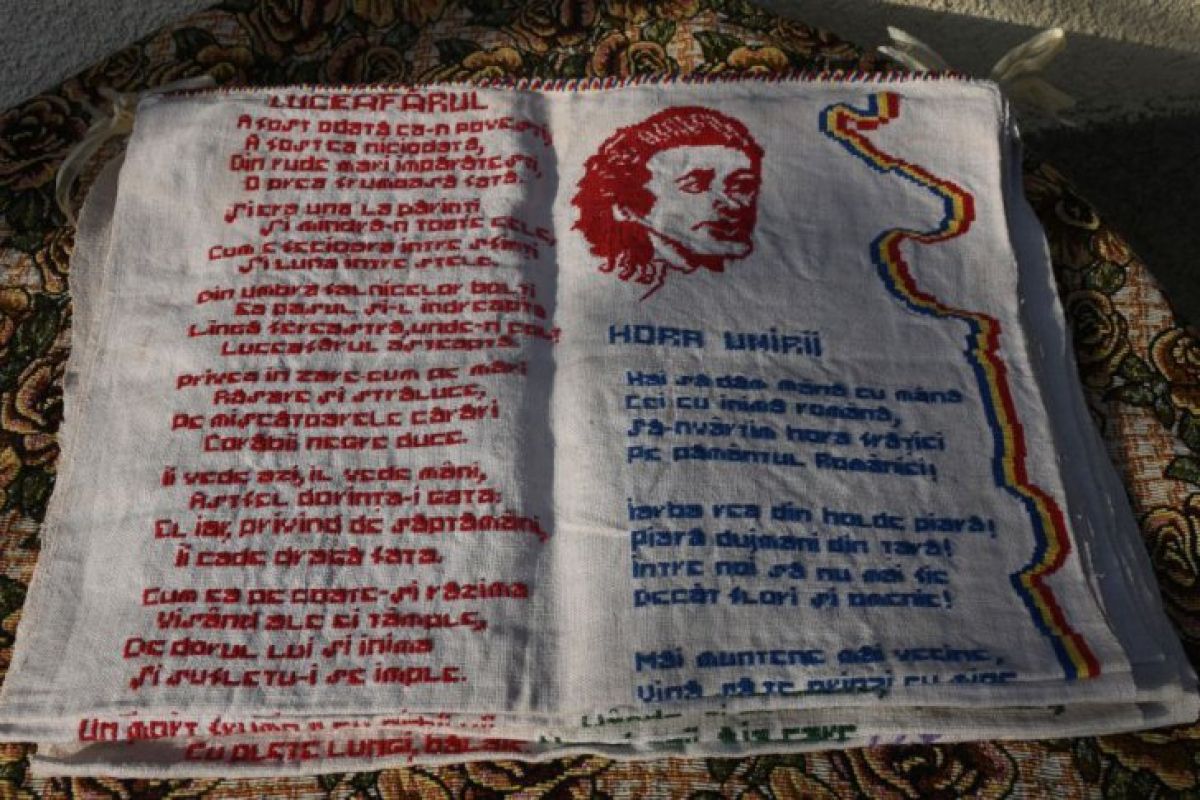 LUCEAFĂRUL
A fost odată ca-n povești
A fost ca niciodată,
Din rude mari împărătești,
O prea frumoasă fată.
Și era una la părinți
Și mîndră-n toate cele,
Cum e fecioara între sfinți
Și luna între stele.
Din umbra falnicelor bolți
Ea pasul și-l îndreaptă
Lîngă fereastră, unde-n colț
Luceafărul așteaptă.
Privea în zare cum pe mări
Răsare și străluce,
Pe mișcătoarele cărări
Corăbii negre duce.
Îl vede azi, îl vede mâni,
Astfel dorința-i gata;
El iar, privind de săptămâni,
Îi cade dragă fata.
Cum ea pe coate-și răzima
Visând ale ei tâmple,
De dorul lui și inima
Și sufletu-i se împle.
Un mort frumos cu
Cu plete lungi, bălaie
HORA UNIRII
Hai să dăm mână cu mână
Cei cu inimă română,
Să-nvârtim hora frăției
Pe pământul României!
Iarba rea din holde piară!
Piară dușmani din țară!
Între noi să nu mai fie
Decât flori și omenie!
Măi muntene măi vecine,
Vină să te prinzi cu mine